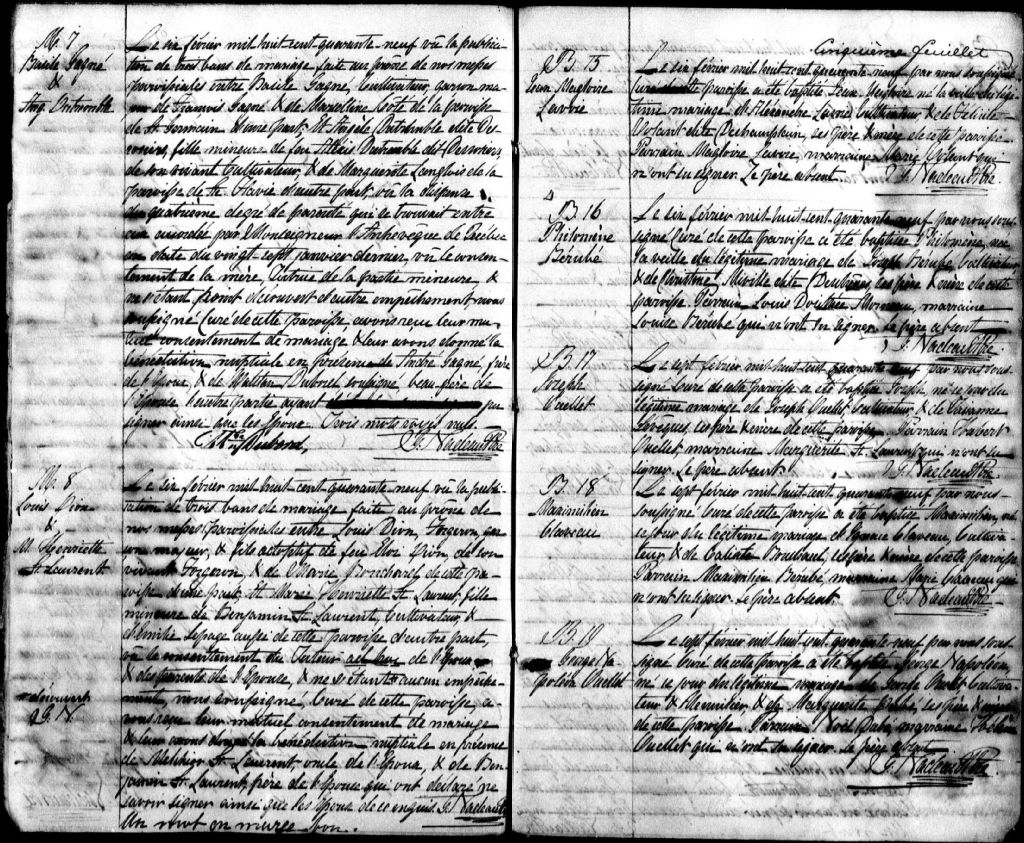 M. 7
Basile Gagné
&
Ang. Dutremble
Le six février mil huit-cent quarante-neuf vû la publica-
tion de trois bans de mariage faite au prône de nos messes
paroissiales entre Basile Gagné, Cultivateur, garçon ma-
jeur de François Gagné & de Marcelline Coté de la paroisse
de St Germain d'une part; Et Angèle Dutremble dite Des-
rosiers, fille mineure de feu Alexis Dutremble dit Desrosiers
de son vivant Cultivateur, & de Marguerite Langlois de la
paroisse de d'autre part, vû la dispense
du quatrième degré de parenté qui se trouvait entre
eux accordée par Monseigneur l'Archevêque de Québec
en date du vingt-sept janvier dernier, vu le consen-
tement de la mère, tutrice de la partie mineure, &
ne s'étant point découvert d'autre empêchement nous
soussigné Curé de cette paroisse avons reçu leur mu-
tuel consentement de mariage & leur avons donné la
bénédiction nuptiale en présence de André Gagné, frère
de l'Epoux, & de beau-père de
l'Epouse l'autre partie ayant
signer ainsi que les Epoux. Trois mots rayés nuls.
J. Nadeau Ptre
M. 8
Louis Dion
&
M. Henriette
St Laurent
Le six février mil huit-cent quarante-neuf vû la publi-
cation de trois bans de mariage faite au prône de
nos messes paroissiales entre Louis Dion, Forgeron, gar-
çon majeur, & fils adoptif de feu Dion de son
vivant Forgeron, & de Marie Bouchard de cette pa-
roisse d'une part; Et Marie Henriette St Laurent fille
mineure de Benjamin St Laurent, Cultivateur, &
d'Emilie Lepage aussi de cette paroisse d'autre part,
vu le consentement du Tuteur de l'Epoux
& des parents de l'Epouse, & ne s'étant aucun empêche-
ment, nous soussigné, Curé de cette paroisse, a-
vons reçu leur mutuel consentement de mariage
& leur avons donné la bénédiction nuptiale en présence
de Melchior St Laurent, oncle de l'Epoux, & de Ben-
jamin St Laurent, père de l'Epouse qui ont déclaré ne
savoir signer ainsi que les Epoux de ce enquis. J. Nadeau Ptre
Un mot en marge bon.
découvert
J. N.
Cinquième feuillet
B. 15
Jean Magloire
Lavoie
Le six février mil huit-cent quarante-neuf par nous soussigné
Curé de cette paroisse a été baptisé Jean Magloire né la veille du légi-
time mariage d'Alexandre Lavoie Cultivateur & de Félicité
Volant dite Deschamplain, les père & mère de cette paroisse.
Parrain Magloire Lavoie, marraine Marie Volant qui
n'ont su signer. Le père absent.
J. Nadeau Ptre
B. 16
Philomène
Bérubé
Le six février mil huit-cent quarante neuf par nous sous-
signé Curé de cette paroisse a été baptisée Philomène, née
la veille du légitime mariage de Joseph Bérubé, Cultivateur
& de Christine Miville dite Deschênes les père & mère de cette
paroisse. Parrain Louis Moreau, marraine
Louise Bérubé qui n'ont su signer. Le père absent
J. Nadeau Ptre
B. 17
Joseph
Ouellet
Le sept février mil huit-cent quarante neuf par nous sous-
signé Curé de cette paroisse a été baptisé Joseph né ce jour du
légitime mariage de Joseph Ouellet Cultivateur & de
Lévesque, les père & mère de cette paroisse. Parrain
Ouellet, marraine Marguerite St Laurent qui n'ont su
signer. Le père absent.
J. Nadeau Ptre
B. 18
Maximilien
Claveau
Le sept février mil huit-cent quarante neuf par nous
soussigné Curé de cette paroisse a été baptisé Maximilien, né
ce jour du légitime mariage d'Ignace Claveau, Cultiva-
teur & de Brisebaut, les père & mère de cette paroisse.
Parrain Maximilien Bérubé, marraine Marie Claveau qui
n'ont su signer. Le père absent.
J. Nadeau Ptre
B. 19
George Na-
poléon Ouellet
Le sept février mil huit-cent quarante neuf par nous sous-
signé Curé de cette paroisse a été baptisé George Napoléon
né ce jour du légitime mariage de Ouellet Cultiva-
teur & & de Marguerite les père & mère
de cette paroisse. Parrain Noël marraine
Ouellet qui n'ont su signer. Le père absent
J. Nadeau Ptre